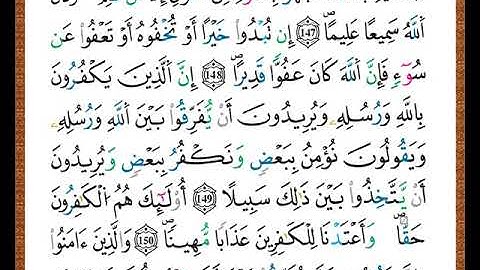 اَ۬للَّهُ سَمِيعًا عَلِيمًا ۖ 147 إِن تُبْدُوا۟ خَيْرًا أَوْ تُخْفُوهُ أَوْ تَعْفُوا۟ عَن
سُوٓءٍ فَإِنَّ اَ۬للَّهَ كَانَ عَفُوًّا قَدِيرًا ۖ 148 إِنَّ اَ۬لَّذِينَ يَكْفُرُونَ
بِاللَّهِ وَرُسُلِهِۦ وَيُرِيدُونَ أَنْ يُّفَرِّقُوا۟ بَيْنَ اَ۬للَّهِ وَرُسُلِهِۦ
وَيَقُولُونَ نُؤْمِنُ بِبَعْضٍ وَنَكْفُرُ بِبَعْضٍ وَيُرِيدُونَ
أَنْ يَّتَّخِذُوا۟ بَيْنَ ذَٰلِكَ سَبِيلًا 149 أُو۟لَٰٓئِكَ هُمُ اُ۬لْكَٰفِرُونَ
حَقًّا ۖ وَأَعْتَدْنَا لِلْكَٰفِرِينَ عَذَابًا مُّهِينًا ۖ 150 وَالَّذِينَ ءَامَنُوا۟